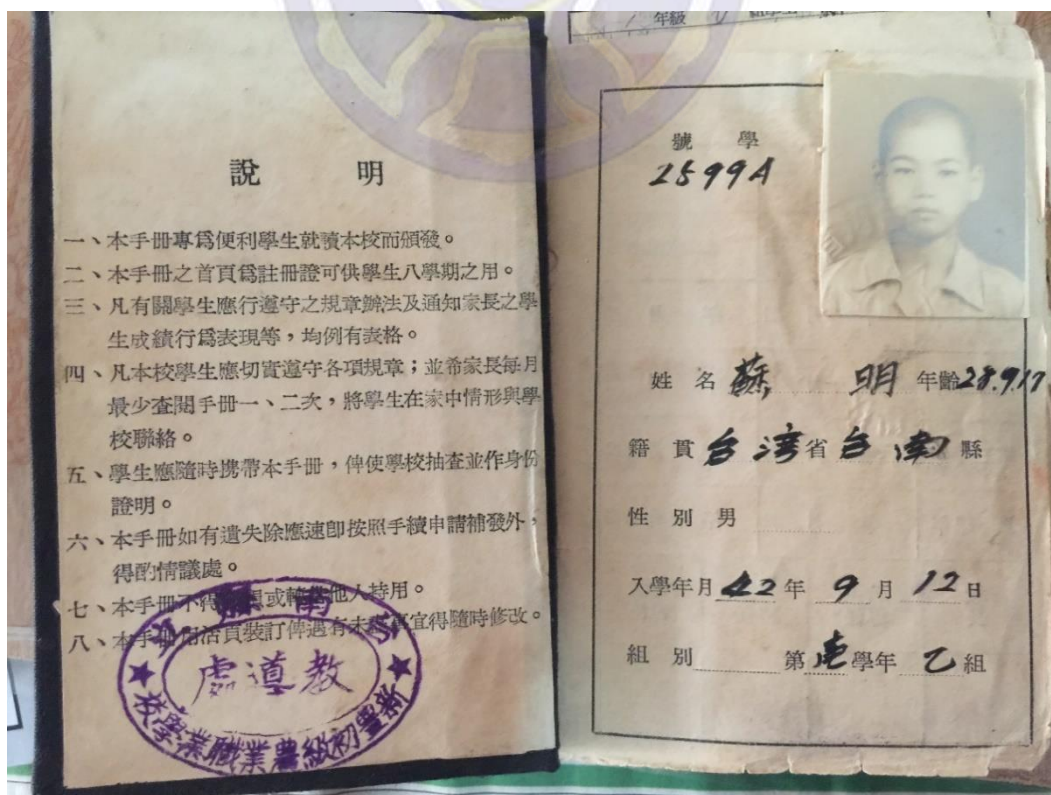 說 明
一、本手冊專爲便利學生就讀本校而頒發。
二、本手冊之首頁爲註冊證可供學生八學期之用。
三、凡有關學生應行遵守之規章辦法及通知家長之學
生成績行爲表現等，均例有表格。
四、凡本校學生應切實遵守各項規章；並希家長每月
最少查閱手冊一、二次，將學生在家中情形與學
校聯絡。
五、學生應隨時携帶本手冊，俾使學校抽查並作身份
證明。
六、本手冊如有遺失除應速卽按照手續申請補發外，
得酌情議處。
七、本手冊不得 或轉 他人持用。
八、本手冊 活頁裝訂俾遇有未 宜得隨時修改。
台南縣立
教導處
新豐初級農業職業學校
年級
號 學
2599A
姓 名 蘇 明 年齡 28.9.17
籍 貫 台湾省台南縣
性 別 男
入學年月 42 年 9 月 12 日
組 別 第 學年 乙 組